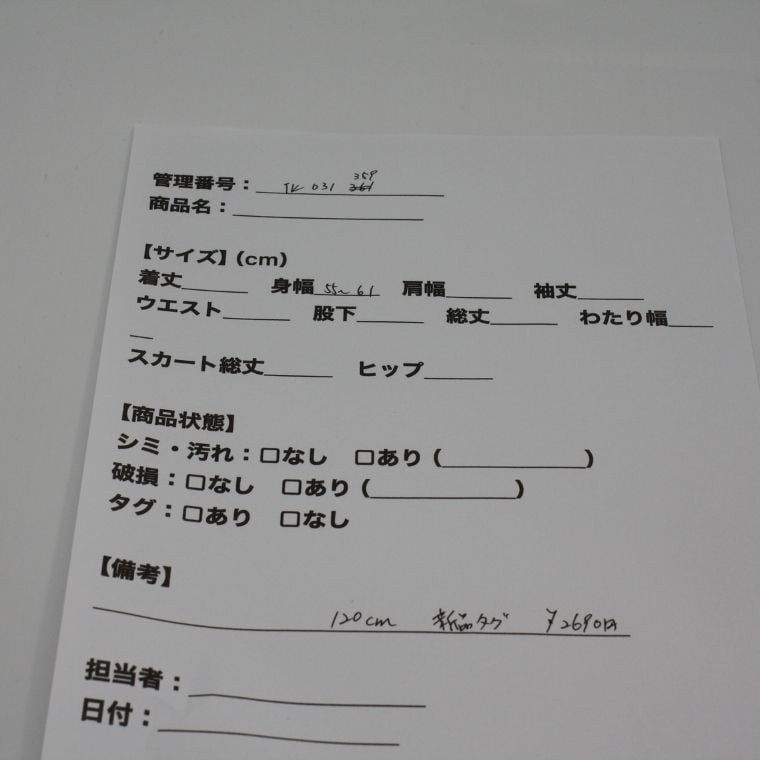 359
管理番号：TK 031 361
商品名：
【サイズ】(cm)
着丈 身幅 55~61 肩幅 袖丈
ウエスト 股下 総丈 わたり幅
スカート総丈 ヒップ
【商品状態】
シミ・汚れ：□なし □あり（ ）
破損：□なし □あり（ ）
タグ：□あり □なし
【備考】
120cm 新品タグ ¥2690円
担当者：
日付：